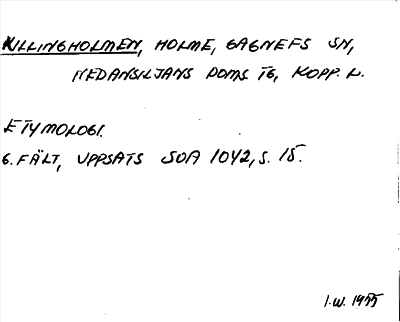 KILLINGHOLMEN, HOLME, GAGNEFS SN,
NEDANSILJANS DOMS TG, KOPP. L.
ETYMOLOGI.
G. FÄLT, UPPSATS SOA 1042, S. 15.
I.W. 1955